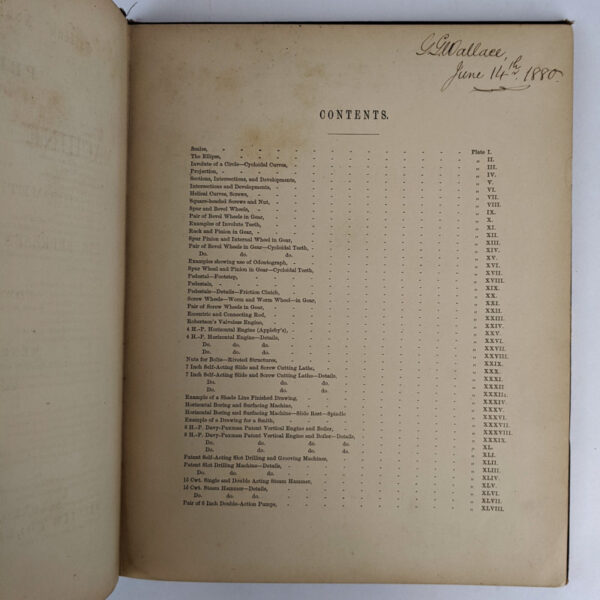 G. G. Wallace,
June 14th 1880.
CONTENTS.
Scales, Plate I.
The Ellipse, „ II.
Involute of a Circle—Cycloidal Curves, „ III.
Projection, „ IV.
Sections, Intersections, and Developments, „ V.
Intersections and Developments, „ VI.
Helical Curves, Screws, „ VII.
Square-headed Screws and Nut, „ VIII.
Spur and Bevel Wheels, „ IX.
Pair of Bevel Wheels in Gear, „ X.
Examples of Involute Teeth, „ XI.
Rack and Pinion in Gear, „ XII.
Spur Pinion and Internal Wheel in Gear, „ XIII.
Pair of Bevel Wheels in Gear—Cycloidal Teeth, „ XIV.
Do. do. do. „ XV.
Examples showing use of Odontograph, „ XVI.
Spur Wheel and Pinion in Gear—Cycloidal Teeth, „ XVII.
Pedestal—Footstep, „ XVIII.
Pedestals, „ XIX.
Pedestals—Details—Friction Clutch, „ XX.
Screw Wheels—Worm and Worm Wheel—in Gear, „ XXI.
Pair of Screw Wheels in Gear, „ XXII.
Eccentric and Connecting Rod, „ XXIII.
Robertson's Valveless Engine, „ XXIV.
4 H.-P. Horizontal Engine (Appleby's), „ XXV.
4 H.-P. Horizontal Engine—Details, „ XXVI.
Do. do. do. „ XXVII.
Do. do. do. „ XXVIII.
Nuts for Bolts—Riveted Structures, „ XXIX.
7 Inch Self-Acting Slide and Screw Cutting Lathe, „ XXX.
7 Inch Self-Acting Slide and Screw Cutting Lathe—Details, „ XXXI.
Do. do. do. „ XXXII.
Do. do. do. „ XXXIII.
Example of a Shade Line Finished Drawing, „ XXXIV.
Horizontal Boring and Surfacing Machine, „ XXXV.
Horizontal Boring and Surfacing Machine—Slide Rest—Spindle „ XXXVI.
Example of a Drawing for a Smith, „ XXXVII.
8 H.-P. Davy-Paxman Patent Vertical Engine and Boiler, „ XXXVIII.
8 H.-P. Davy-Paxman Patent Vertical Engine and Boiler—Details, „ XXXIX.
Do. do. do. do. „ XL.
Do. do. do. do. „ XLI.
Patent Self-Acting Slot Drilling and Grooving Machines, „ XLII.
Patent Slot Drilling Machine—Details, „ XLIII.
Do. do. do. „ XLIV.
1½ Cwt. Single and Double Acting Steam Hammer, „ XLV.
1½ Cwt. Steam Hammer—Details, „ XLVI.
Do. do. do. „ XLVII.
Pair of 6 Inch Double-Action Pumps, „ XLVIII.